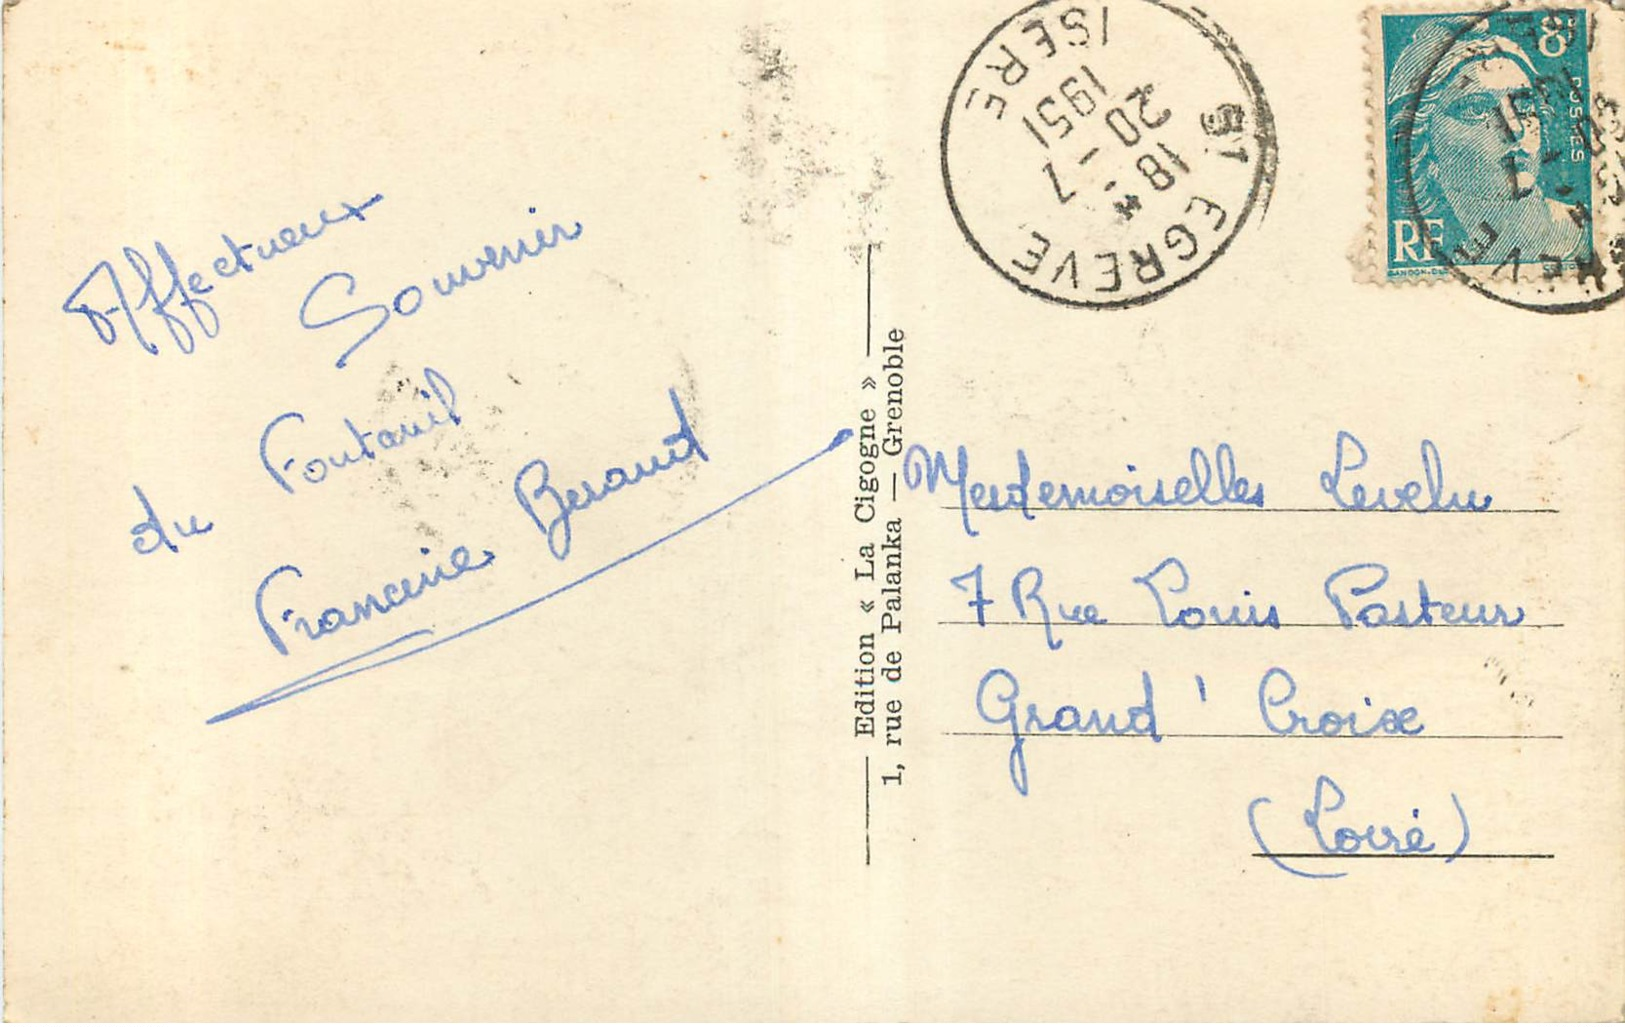 Affectueux
Souvenir
du Fontanil
Francine Beraud
Edition « La Cigogne »
1, rue de Palanka — Grenoble
ST EGREVE
ISERE
18 *
20 - 7
1951
8F
POSTES
RF
GANDON
Mesdemoiselles
7 Rue Louis Pasteur
Grand' Croix
(Loire)